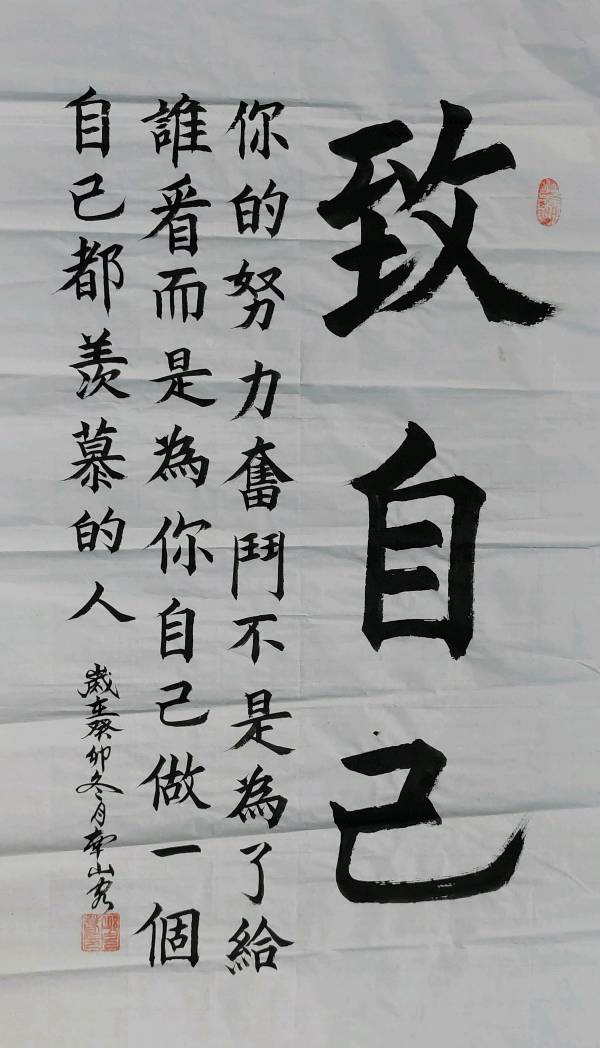 致自己
你的努力奮鬥不是為了給
誰看而是為你自己做一個
自己都羨慕的人
歲在癸卯冬月南山客